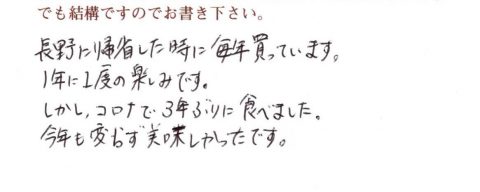 でも結構ですのでお書き下さい。
長野に帰省した時に毎年買っています。
1年に1度の楽しみです。
しかし、コロナで3年ぶりに食べました。
今年も変わらず美味しかったです。